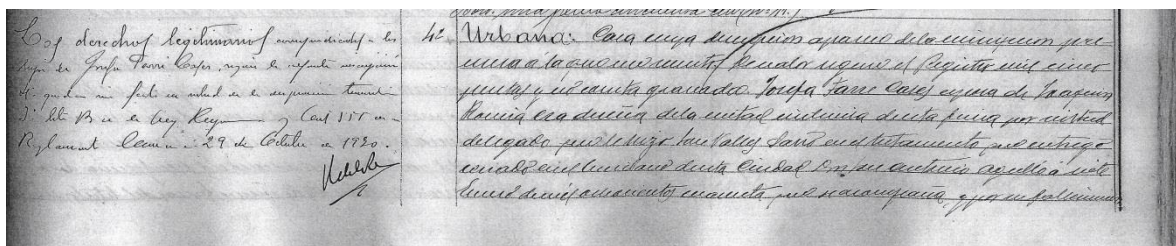 Los derechos legitimarios correspondientes a los
hijos de Josefa Farré Cases, según la adjunta inscripción
4ª quedan sin efecto en virtud de la disposición transitoria
3ª letra B de la Ley y 355 de su
Reglamento 29 de Octubre de 1920.
42 Urbana: Casa cuya descripción aparece de la inscripción pri-
mera á la que me remito, su valor segun el Registro mil cinco
pesetas y no consta gravada. Josefa Farre Cases esposa de Joaquin
era dueña de la mitad indivisa de esta finca por virtud
del legado que le hizo José en el testamento que entregó
cerrado en el de esta Ciudad Don José Antonio á siete
de mil ochocientos cincuenta y por su fallecimien